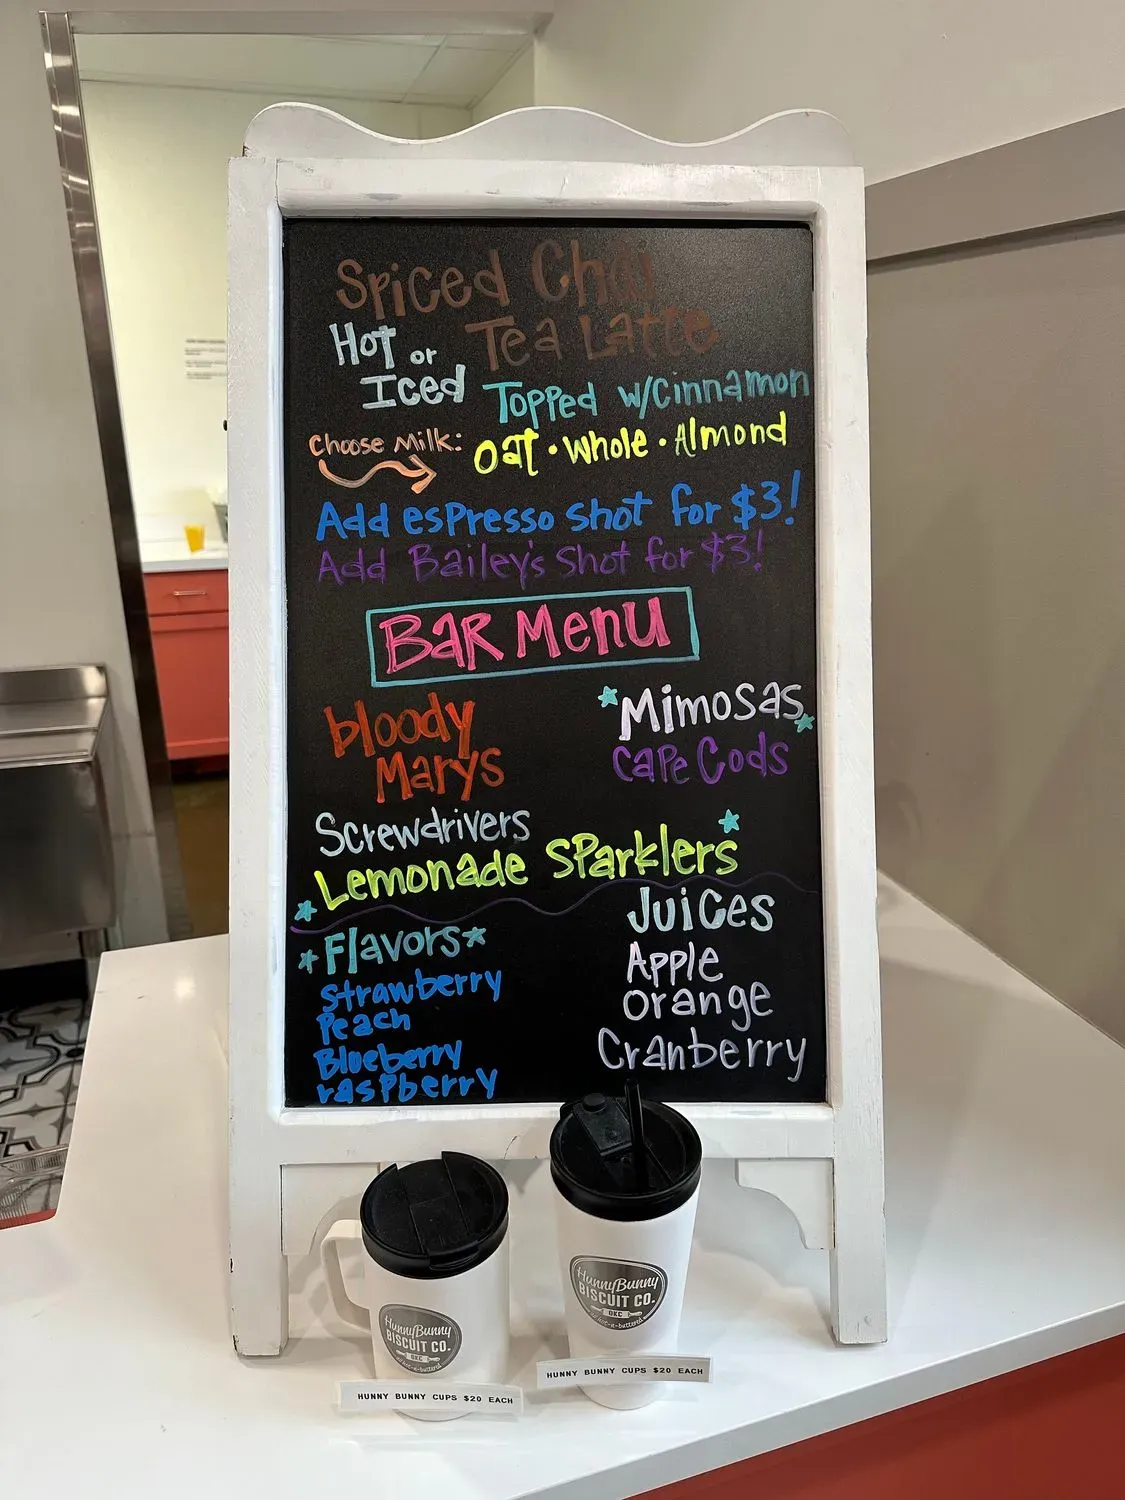 Spiced Chai
Tea Latte
Hot or
Iced
Topped w/Cinnamon
Choose Milk:
Oat • Whole • Almond
Add espresso shot for $3!
Add Bailey's Shot for $3!
BAR MENU
bloody
Marys
Mimosas
Cape Cods
Screwdrivers
Lemonade Sparklers
Flavors
Strawberry
Peach
Blueberry
raspberry
Juices
Apple
Orange
Cranberry
HunnyBunny
BISCUIT CO.
OKC
HUNNY BUNNY CUPS $20 EACH
HunnyBunny
BISCUIT CO.
OKC
HUNNY BUNNY CUPS $20 EACH